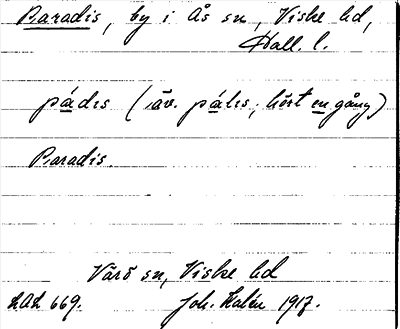 Paradis, by i Ås sn, Viske hd,
Hall. l.
pádıs (äv. pálıs, hört en gång)
Paradis.
Värö sn, Viske hd
Joh. Kalén 1917.
669.